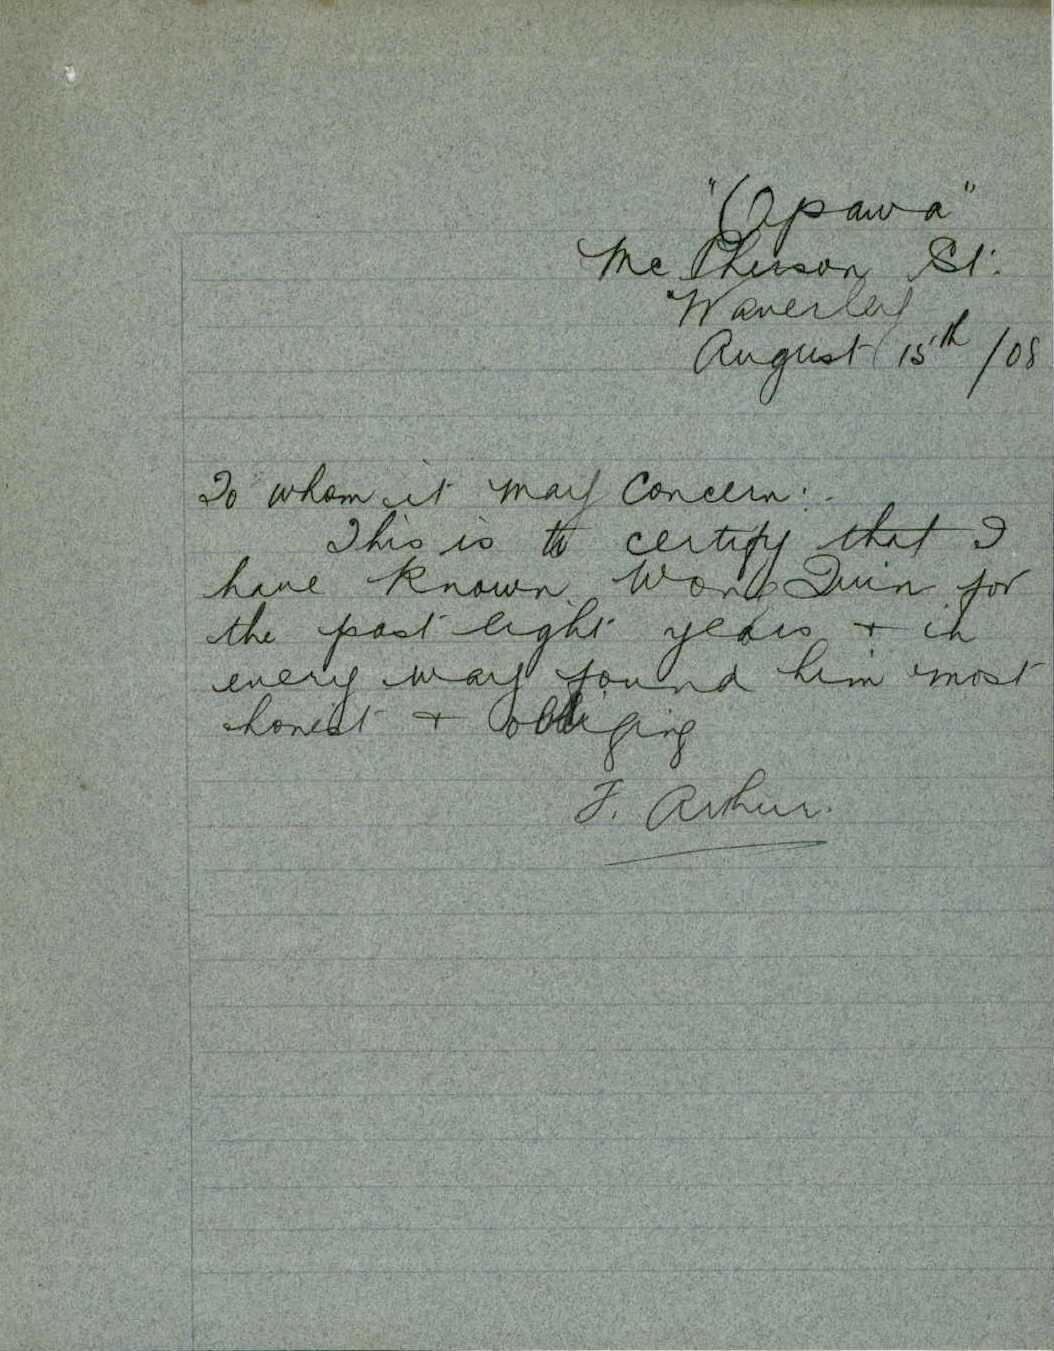 "Opawa"
McPherson St.
Waverley
August 15th /08
To whom it may Concern:.
This is to certify that I
have known Wong Quin for
the past eight years + in
every way found him most
honest + obliging
F. Arthur.